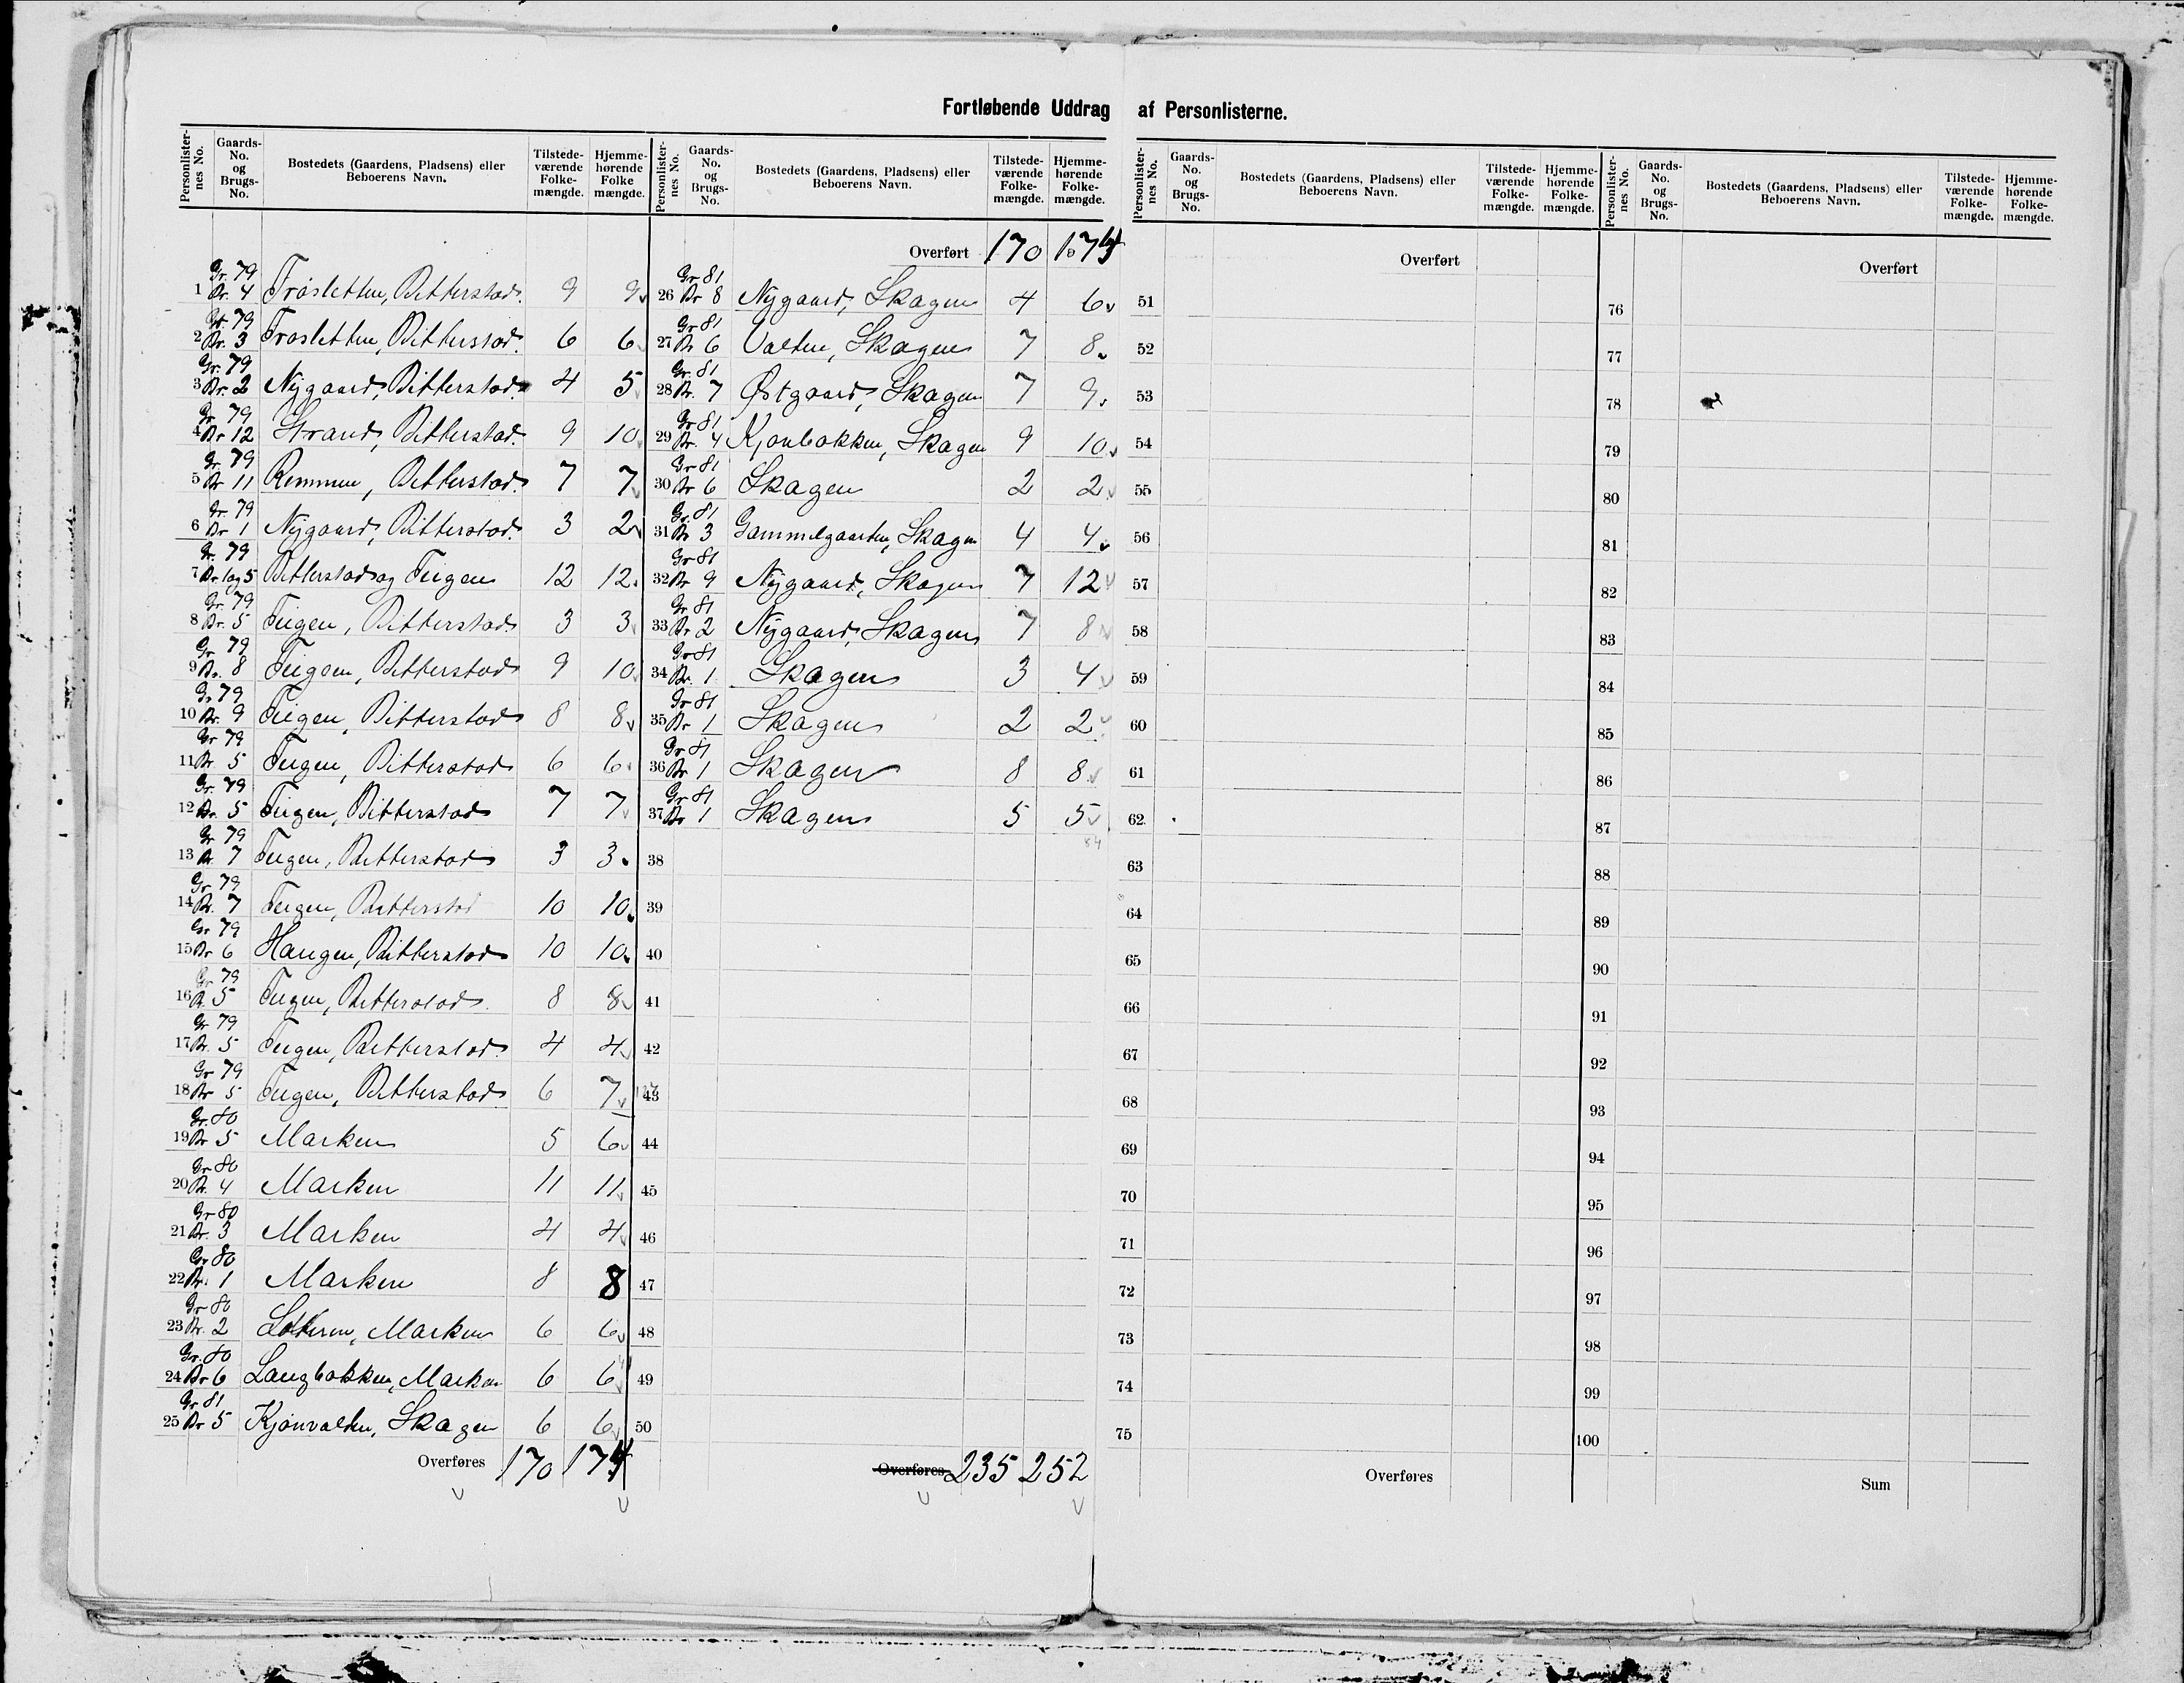 Fortløbende Uddrag af Personlisterne.
Personlister-nes No. Gaards-No. og Brugs-No. Bostedets (Gaardens, Pladsens) eller Beboerens Navn. Tilstede-værende Folke-mængde. Hjemme-hørende Folke mængde.
1 Gr. 79 Br. 4 Frosletten, Bitterstad. 9 9
2 Gr. 79 Br. 3 Frosletten, Bitterstad. 6 6
3 Gr. 79 Br. 2 Nygaard, Bitterstad. 4 5
4 Gr. 79 Br 12 Strand, Bitterstad. 9 10
5 Gr. 79 Br 11 Remmen, Bitterstad. 7 7
6 Gr. 79 Br 1 Nygaard, Bitterstad. 3 2
7 Gr. 79 Br 1og5 Bitterstad og Teigen 12 12
8 Gr. 79 Br. 5 Teigen, Bitterstad 3 3
9 Gr 79 Br. 8 Teigen, Bitterstad 9 10
10 Gr 79 Br. 9 Teigen, Bitterstad 8 8
11 Gr 79 Br. 5 Teigen, Bitterstad 6 6
12 Gr. 79 Br. 5 Teigen, Bitterstad 7 7
13 Gr 79 Br. 7 Teigen, Bitterstad 3 3
14 Gr 79 Br. 7 Teigen, Bitterstad 10 10
15 Gr 79 Br 6 Haugen, Bitterstad 10 10
16 Gr 79 Br. 5 Teigen, Bitterstad. 8 8
17 Gr 79 Br. 5 Teigen, Bitterstad. 4 4
18 Gr 79 Br 5 Teigen, Bitterstad 6 7
19 Gr. 80 Br 5 Marken 5 6
20 Gr 80 Br. 4 Marken 11 11
21 Gr 80 Br. 3 Marken 4 4
22 Gr 80 Br. 1 Marken 8 8
23 Gr 80 Br. 2 Marken 6 6
24 Gr. 80 Br 6 Langbakken, Marken 6 6
25 Gr 81 Br 5 Kjønvalten, Skagen 6 6
Overføres 170 174
Personlister-nes No. Gaards-No. og Brugs-No. Bostedets (Gaardens, Pladsens) eller Beboerens Navn. Tilstede-værende Folke-mængde. Hjemme-hørende Folke-mængde.
Overført 170 174
26 Gr 81 Br 8 Nygaard, Skagen 4 6
27 Gr 81 Br 6 Valten, Skagen 7 8
28 Gr. 81 Br. 7 Østgaard, Skagen 7 9
29 Gr 81 Br. 4 Kjønbakken, Skagen 9 10
30 Gr 81 Br 6 Skagen 2 2
31 Gr. 81 Br 3 Gammelgaarden, Skagen 4 4
32 Gr 81 Br 9 Nygaard, Skagen 7 12
33 Gr 81 Br 2 Nygaard, Skagen 7 8
34 Gr 81 Br. 1 Skagen 3 4
35 Gr 81 Br 1 Skagen 2 2
36 Gr 81 Br 1 Skagen 8 8
37 Gr 81 Br 1 Skagen 5 5
84
38
39
40
41
42
43
44
45
46
47
48
49
50
Overføres 235 252
Personlister-nes No. Gaards-No. og Brugs-No. Bostedets (Gaardens, Pladsens) eller Beboerens Navn. Tilstede-værende Folke-mængde. Hjemme-hørende Folke-mængde.
Overført
51
52
53
54
55
56
57
58
59
60
61
62
63
64
65
66
67
68
69
70
71
72
73
74
75
Overføres
Personlister-nes No. Gaards-No. og Brugs-No. Bostedets (Gaardens, Pladsens) eller Beboerens Navn. Tilstede-værende Folke-mængde. Hjemme-hørende Folke-mængde.
Overført
76
77
78
79
80
81
82
83
84
85
86
87
88
89
90
91
92
93
94
95
96
97
98
99
100
Sum